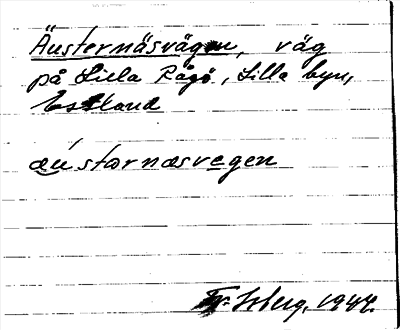 Äusternäsvägen, väg
på Lilla Rågö, Lilla byn,
Estland
äu'starnäsvegen
Fr. Isberg, 1944.